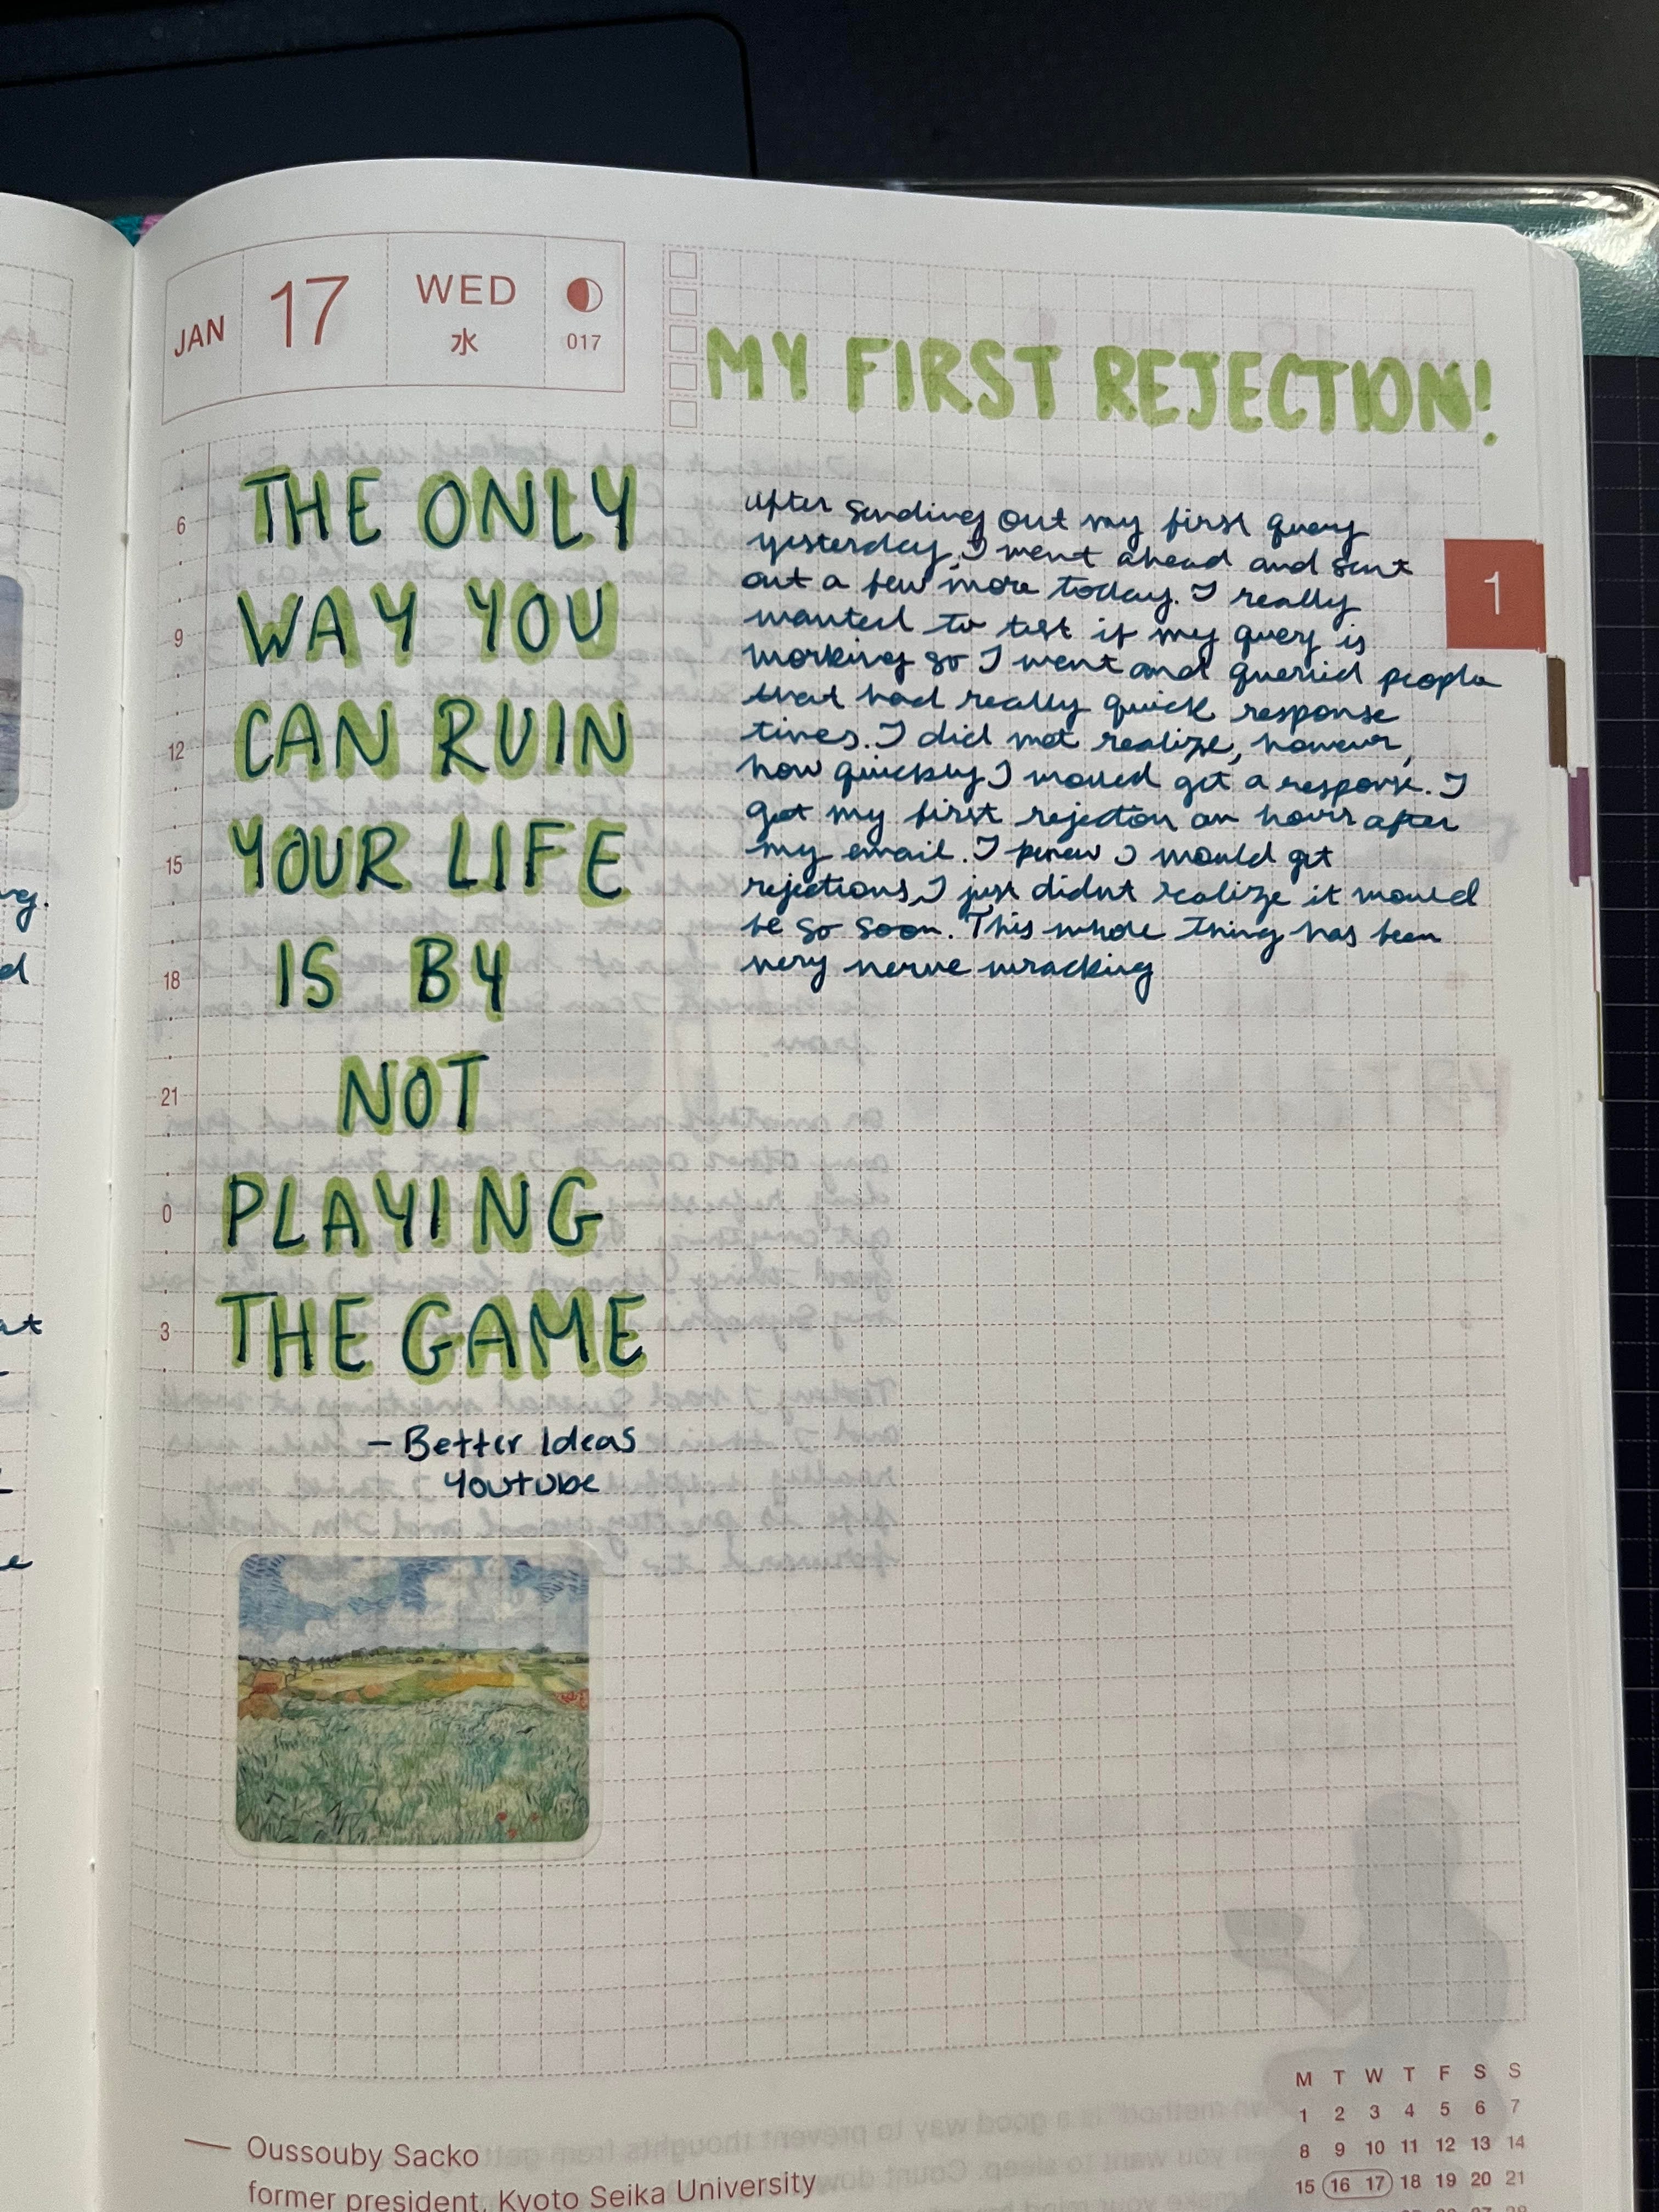 JAN 17 WED
水 017
MY FIRST REJECTION!
THE ONLY
WAY YOU
CAN RUIN
YOUR LIFE
IS BY
NOT
PLAYING
THE GAME
- Better Ideas
Youtube
6
9
12
15
18
21
0
3
after sending out my first query
yesterday, I went ahead and sent
out a few more today. I really
wanted to test if my query is
working so I went and queried people
that had really quick response
times. I did not realize, however,
how quickly I would get a response. I
got my first rejection an hour after
my email. I knew I would get
rejections, I just didnt realize it would
be so soon. This whole thing has been
very nerve wracking
1
— Oussouby Sacko
former president, Kyoto Seika University
M T W T F S S
1 2 3 4 5 6 7
8 9 10 11 12 13 14
15 16 17 18 19 20 21